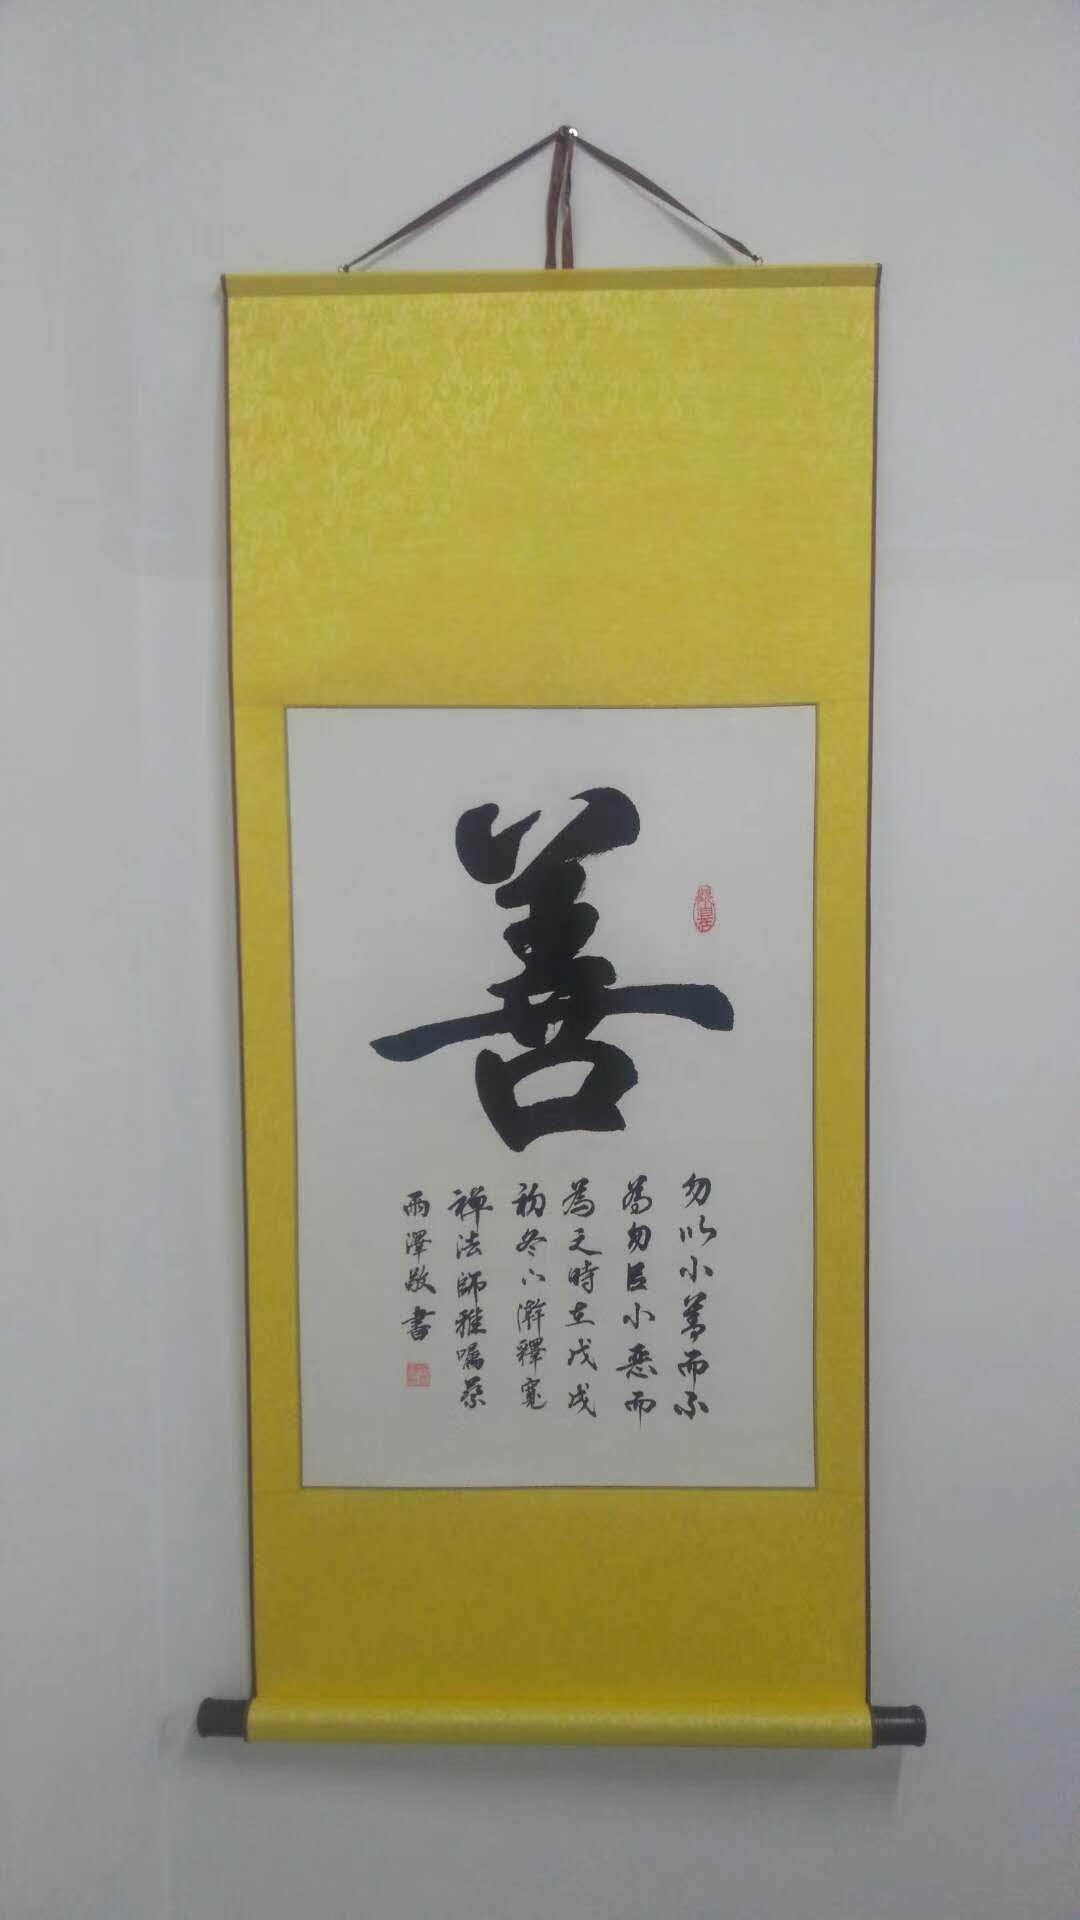 善
勿以小善而不
為勿㠯小惡而
為之時在戊戌
初冬下澣釋寬
禪法師雅囑蔡
雨澤敬書